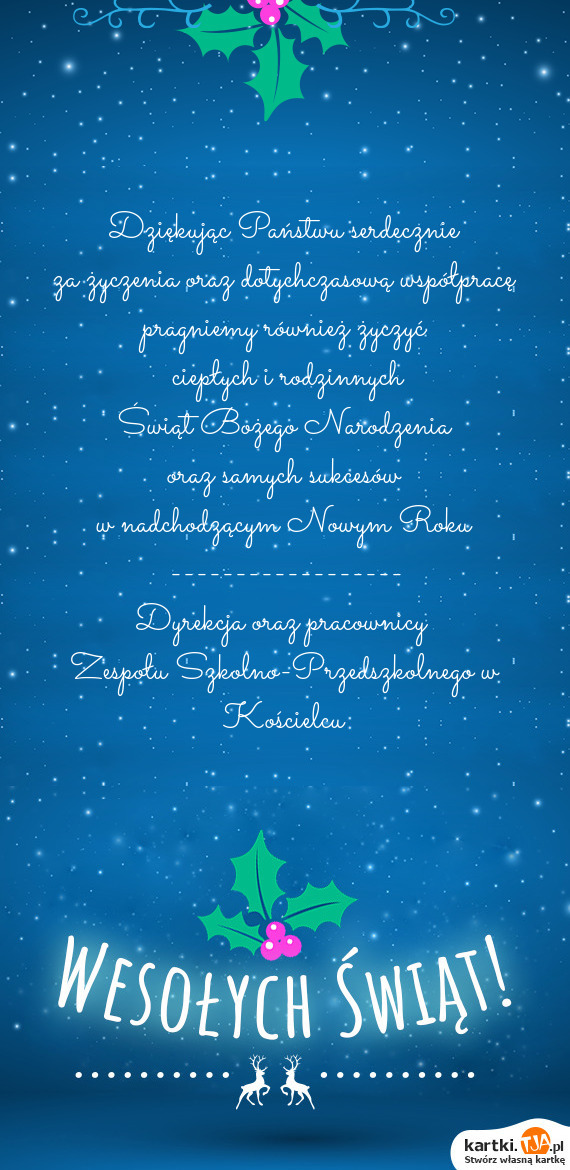 Dziękując Państwu serdecznie
za życzenia oraz dotychczasową współpracę,
pragniemy również życzyć
ciepłych i rodzinnych
Świąt Bożego Narodzenia
oraz samych sukcesów
w nadchodzącym Nowym Roku
------------------
Dyrekcja oraz pracownicy
Zespołu Szkolno-Przedszkolnego w
Kościelcu
Wesołych Świąt!
kartki.TJA.pl
Stwórz własną kartkę